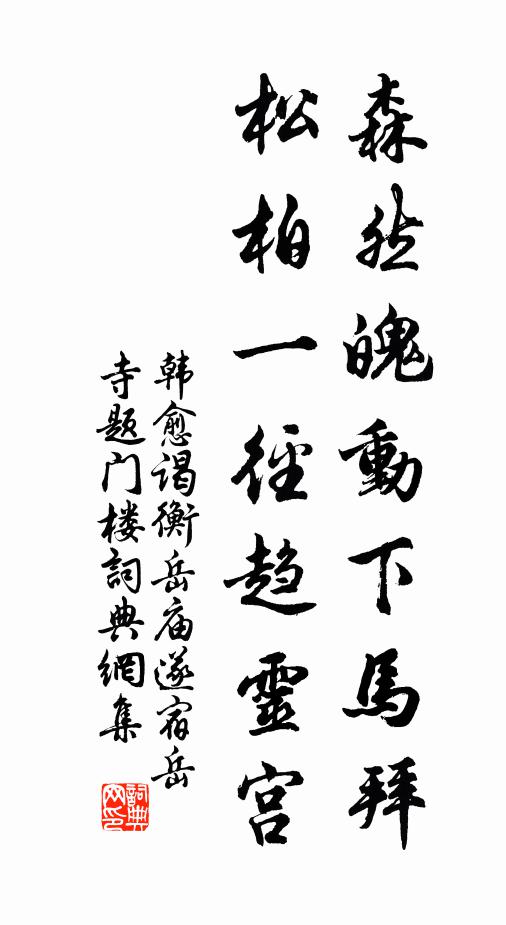 森然魄動下馬拜
松柏一徑趨靈宮
韩愈谒衡岳庙遂宿岳
寺题门楼詞典網集
詞典网印